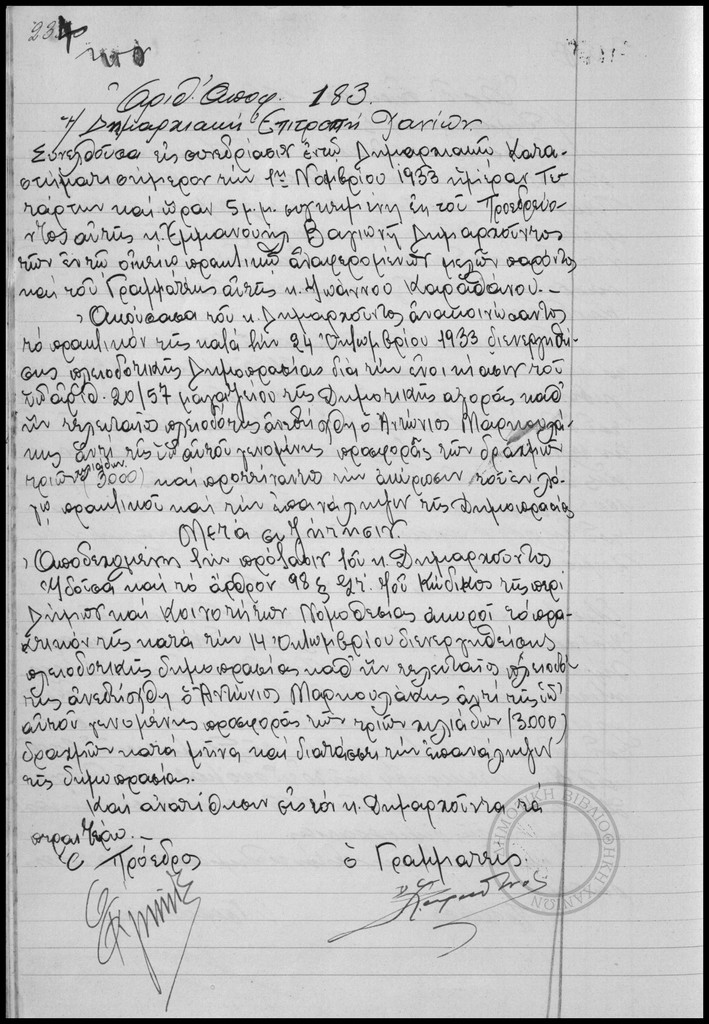 234
Ἀριθ. Ἀποφ. 183.
Ἡ Δημαρχιακή Ἐπιτροπή Χανίων
Συνελθοῦσα εἰς συνεδρίασιν ἐν τῷ Δημαρχιακῷ Κατα-
στήματι σήμερον τήν 1ην Νοεμβρίου 1933 ἡμέραν Τε-
τάρτην καί ὥραν 5 μ.μ. συγκειμένη ἐκ τοῦ Προεδρεύο-
ντος αὐτῆς κ. Ἐμμανουήλ Βαγιωνῆ Δημαρχοῦντος
τῶν ἐν τῷ οἰκείῳ πρακτικῷ ἀναφερομένων μελῶν παρόντος
καί τοῦ Γραμματέως αὐτῆς κ. Ἰωάννου Καραθάνου.-
Ἀκούσασα τοῦ κ. Δημαρχοῦντος ἀνακοινώσαντος
τό πρακτικόν τῆς κατά τήν 24 Ὀκτωμβρίου 1933 διενεργηθεί-
σης πλειοδοτικῆς Δημοπρασίας διά τήν ἐνοικίασιν τοῦ
ὑπ' ἀριθ. 20/57 μαγαζείου τῆς Δημοτικῆς ἀγορᾶς καθ'
ἥν τελευταῖος πλειοδότης ἀνεδείχθη ὁ Ἀντώνιος Μαρκουλά-
κης ἀντί τῆς ὑπ' αὐτοῦ γενομένης προσφορᾶς τῶν δραχμῶν
τριῶν χιλιάδων (3000) καί προτείναντος τήν ἀκύρωσιν τοῦ ἐν λό-
γῳ πρακτικοῦ καί τήν ἐπανάληψιν τῆς Δημοπρασίας
Μετά συζήτησιν.
Ἀποδεχομένη τήν πρότασιν τοῦ κ. Δημαρχοῦντος
Ἰδοῦσα καί τό ἄρθρον 98 § τοῦ Κώδικος τῆς περί
Δήμων καί Κοινοτήτων Νομοθεσίας ἀκυροῖ τό πρα-
κτικόν τῆς κατά τήν 14 Ὀκτωμβρίου διενεργηθείσης
πλειοδοτικῆς δημοπρασίας καθ' ἥν τελευταῖος πλειοδό-
της ἀνεδείχθη ὁ Ἀντώνιος Μαρκουλάκης ἀντί τῆς ὑπ'
αὐτοῦ γενομένης προσφορᾶς τῶν τριῶν χιλιάδων (3000)
δραχμῶν κατά μῆνα καί διατάσσει τήν ἐπανάληψιν
τῆς δημοπρασίας.
Καί ἀνατίθησιν εἰς τόν κ. Δημαρχοῦντα τά
περαιτέρω.-
Ὁ Πρόεδρος ὁ Γραμματεύς
ΔΗΜΟΤΙΚΗ ΒΙΒΛΙΟΘΗΚΗ ΧΑΝΙΩΝ